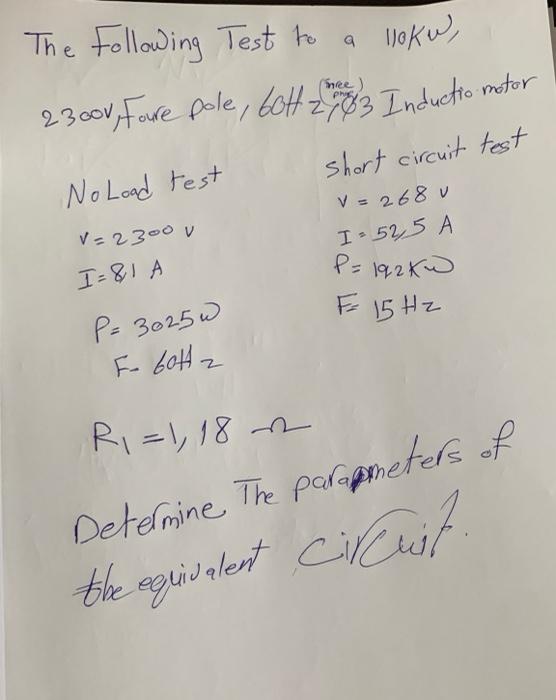 The Following Test to a 110KW,
2300V, Foure pole, 60Hz, Ø3 (three phase) Inductio motor
No Load test
V = 2300 V
I = 81 A
P = 3025 W
F - 60Hz
short circuit test
V = 268 V
I = 52,5 A
P = 19,2 KW
F = 15 Hz
R1 = 1,18 Ω
Determine The parapmeters of
the equivalent circuit.